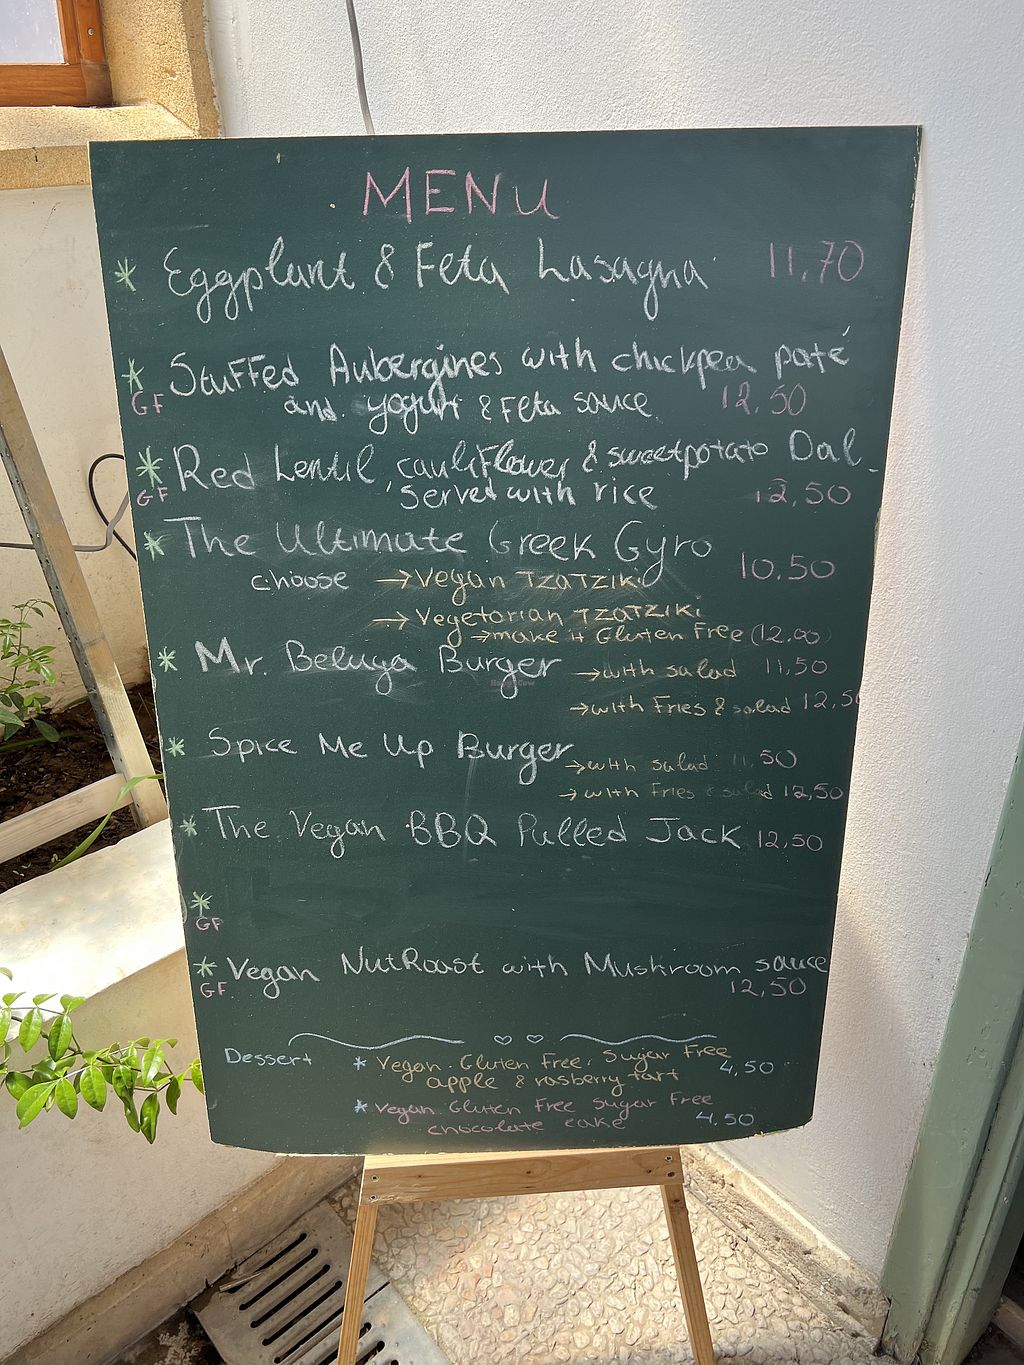 MENU
* Eggplant & Feta Lasagna 11,70
* Stuffed Aubergines with chickpea paté
GF and yogurt & Feta sauce 12,50
* Red Lentil, cauliflower & sweetpotato Dal.
GF served with rice 12,50
* The Ultimate Greek Gyro 10.50
choose → Vegan TZATZIKI
→ Vegetarian TZATZIKI
→ make it Gluten Free (12,00)
* Mr. Beluga Burger → with salad 11,50
→ with Fries & salad 12,50
* Spice Me Up Burger → with salad 11,50
→ with Fries & salad 12,50
* The Vegan BBQ Pulled Jack 12,50
*
GF
* Vegan NutRoast with Mushroom sauce
GF 12,50
Dessert * Vegan. Gluten Free. Sugar Free 4,50
apple & rasberry tart
* Vegan Gluten Free Sugar Free
chocolate cake 4.50